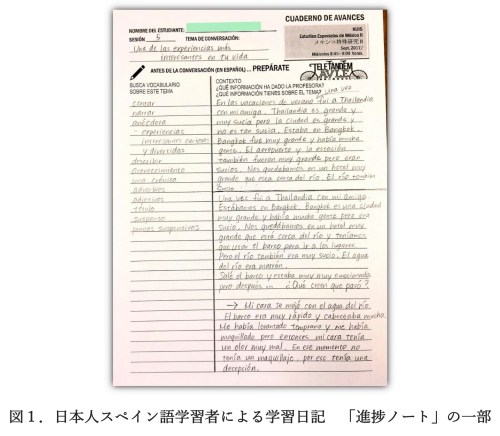 CUADERNO DE AVANCES
NOMBRE DEL ESTUDIANTE:
SESIÓN 5 TEMA DE CONVERSACIÓN:
Una de las experiencias más
interesantes en tu vida
KUIS
Estudios Especiales de México II
メキシコ特殊研究 II
Sept. 2017/
Miércoles 8:45 - 9:00 horas.
TELETANDEM
ANTES DE LA CONVERSACIÓN (EN ESPAÑOL) ... PREPÁRATE
BUSCA VOCABULARIO
SOBRE ESTE TEMA
contar
narrar
anécdota
- experiencias
interesantes curiosas
y divertidas
describir
acontecimiento
una crónica
adverbios
adjetivos
título
suspenso
puntos suspensivos
CONTEXTO
¿QUÉ INFORMACIÓN HA DADO LA PROFESORA?
¿QUÉ INFORMACIÓN TIENES SOBRE EL TEMA?
una vez
En las vacaciones de verano fui a Thailandia
con mi amiga. Thailandia es grande y
muy sucia pero la ciudad es grande y
no es tan sucia. Estaba en Bangkok.
Bangkok fue muy grande y había mucha
gente. El aeropuerto y la estación
también fueron muy grande pero eran
sucios. Nos quedabamos en un hotel muy
grande que esta cerca del río. El río también
sucio.
Una vez fui a Thailandia con mi amiga.
Estábamos en Bangkok. Bangkok es una ciudad
muy grande y había mucha gente pero era
sucio. Nos quedábamos en un hotel muy
grande que está cerca del río y teníamos
que usar el barco para ir a los lugares.
Pero el río también era muy sucio. El agua
del río era marrón.
Salé el barco y estaba muy muy emocionada
pero después... ¿Qué crean que pasó?
→ Mi cara se mojó con el agua del río.
El barco era muy rápido y cabeceaba mucho.
Me había levantado temprano y me había
maquillado pero entonces mi cara tenía
un olor muy mal. En ese momento no
tenía un maquillaje, por eso tenía una
decepción.
図1．日本人スペイン語学習者による学習日記　「進捗ノート」の一部